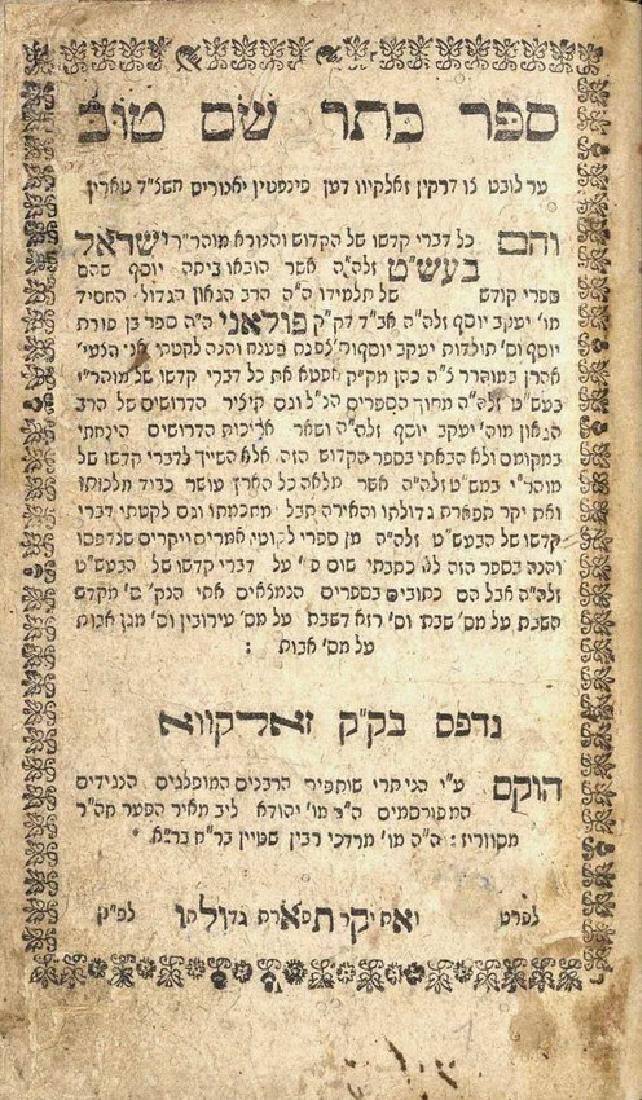 ספר כתר שם טוב
ער לובט צו דרקין זאלקיוו דען פינפטין יאנוארים תשצ"ד טארין
והם כל דברי קדשו של הקדוש והנורא מוהר"ר ישראל
בעש"ט זלה"ה אשר הובאו ביתה יוסף שהם
ספרי קודש של תלמידו ה"ה הרב הגאון הגדול החסיד
מו' יעקב יוסף זלה"ה אב"ד דק"ק פולאני ה"ה ספר בן פורת
יוסף וס' תולדות יעקב יוסף וס' צפנת פענח והנה לקטתי אני הצעי'
אהרן במוהרר צ"ה כהן מק"ק אפטא את כל דברי קדשו של מוהר"י
בעש"ט זלה"ה מתוך הספרים הנ"ל וגם קיצור הדרושים של הרב
הגאון מוה' יעקב יוסף זלה"ה ושאר אריכות הדרושים הינחתי
במקומם ולא הבאתי בספר הקדוש הזה אלא השייך לדברי קדשו של
מוהר"י בעש"ט זלה"ה אשר מלאה כל הארץ עושר כבוד מלכותו
ואת יקר תפארת גדולתו והאירה תבל מחכמתו וגם לקטתי דברי
קדשו של הבעש"ט זלה"ה מן ספרי לקוטי אמרים ויקרים שנדפסו
והנה בספר הזה לא כתבתי שום פי' על דברי קדשו של הבעש"ט
זלה"ה אבל הם כתובים בספרים הנמצאים אתי הנק' ס' מקדש
השבת על מס' שבת וס' רזא דשבת על מס' עירובין וס' מגן אבות
על מס' אבות :
נדפס בק"ק זאלקווא
הוקם ע"י הני תרי שותפין הרבנים המופלגים הנגידים
המפורסמים ה"ה מו' יהודא ליב מאיר הפער מה"ר
מסווריז: ה"ה מו' מרדכי רבין שטיין בר"מ ברי"א
לפרט ואת יקר תפארת גדולתו לפ"ק